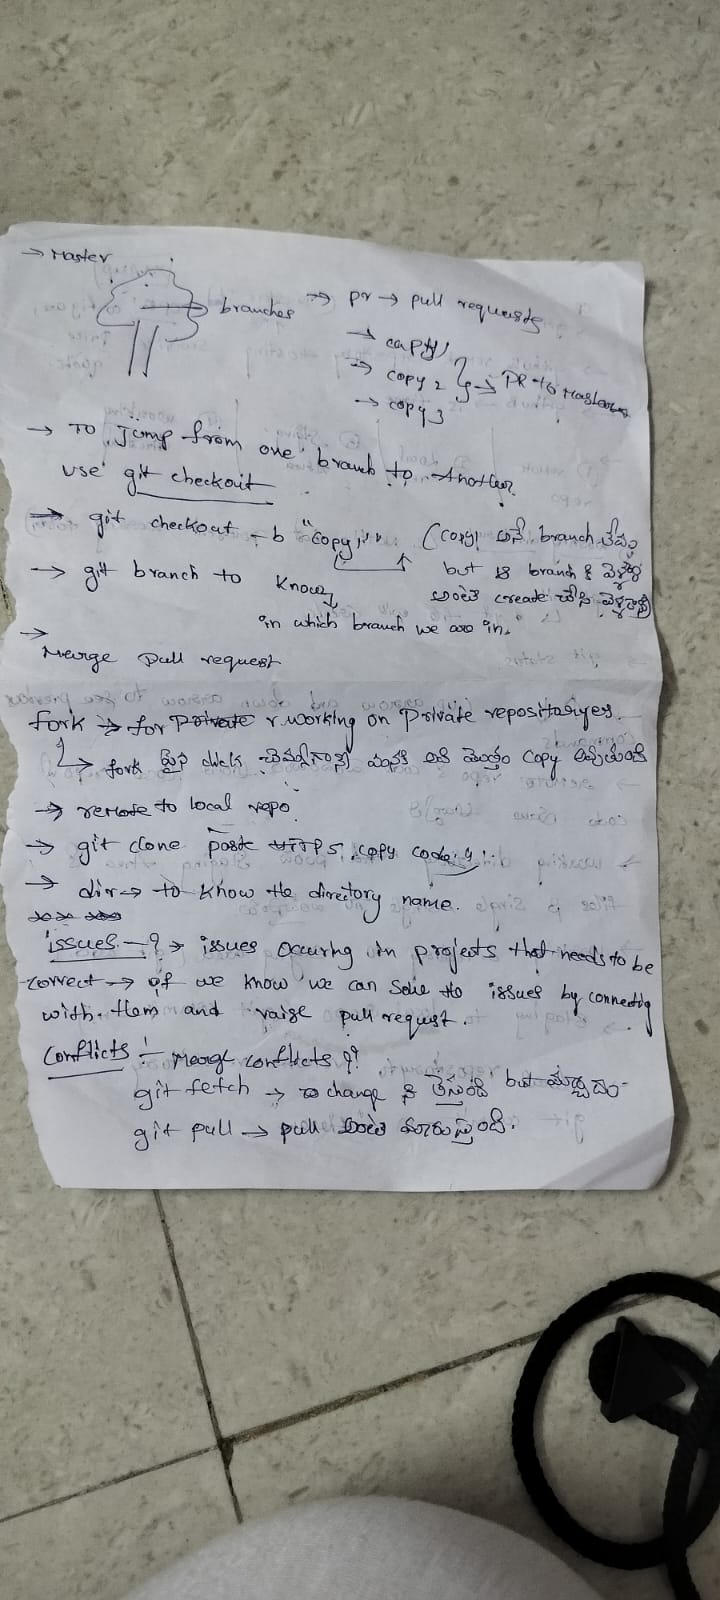 → Master
branches → pr → pull requests
→ copy1
→ copy 2 → PR to Master
→ copy 3
→ To Jump from one branch to Another
use git checkout
→ git checkout -b "copy1" (copy1 అనే branch లేదు
but ఆ branch కి వెళ్లాలి
అంటే create చేసి వెళ్తాం)
→ git branch to know
in which branch we are in.
→
Merge pull request
fork → for working on Private repositaryes.
↳ fork పైన click చేయగానే మనకి అది మొత్తం copy అవుతుంది
→ remote to local repo
→ git clone paste HTTPS copy code
→ dir → to know the directory name.
issues -? → issues occuring in projects that needs to be
correct → if we know we can solve the issues by connectig
with them and raise pull request.
Conflicts !- Merge conflicts ??
git fetch → change ని తెస్తుంది but మార్చదు
git pull → pull అంటే మారుస్తుంది.